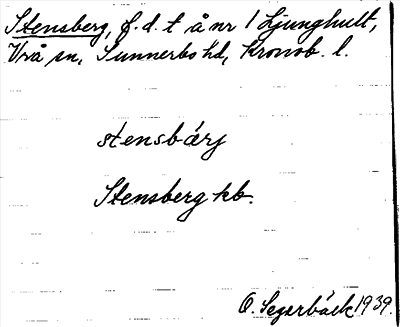 Stensberg, f.d. t å nr 1 Ljunghult,
Vrå sn, Sunnerbo hd, Kronob. l.
stensbärj
Stensberg kb.
O. Segerbäck 1939.